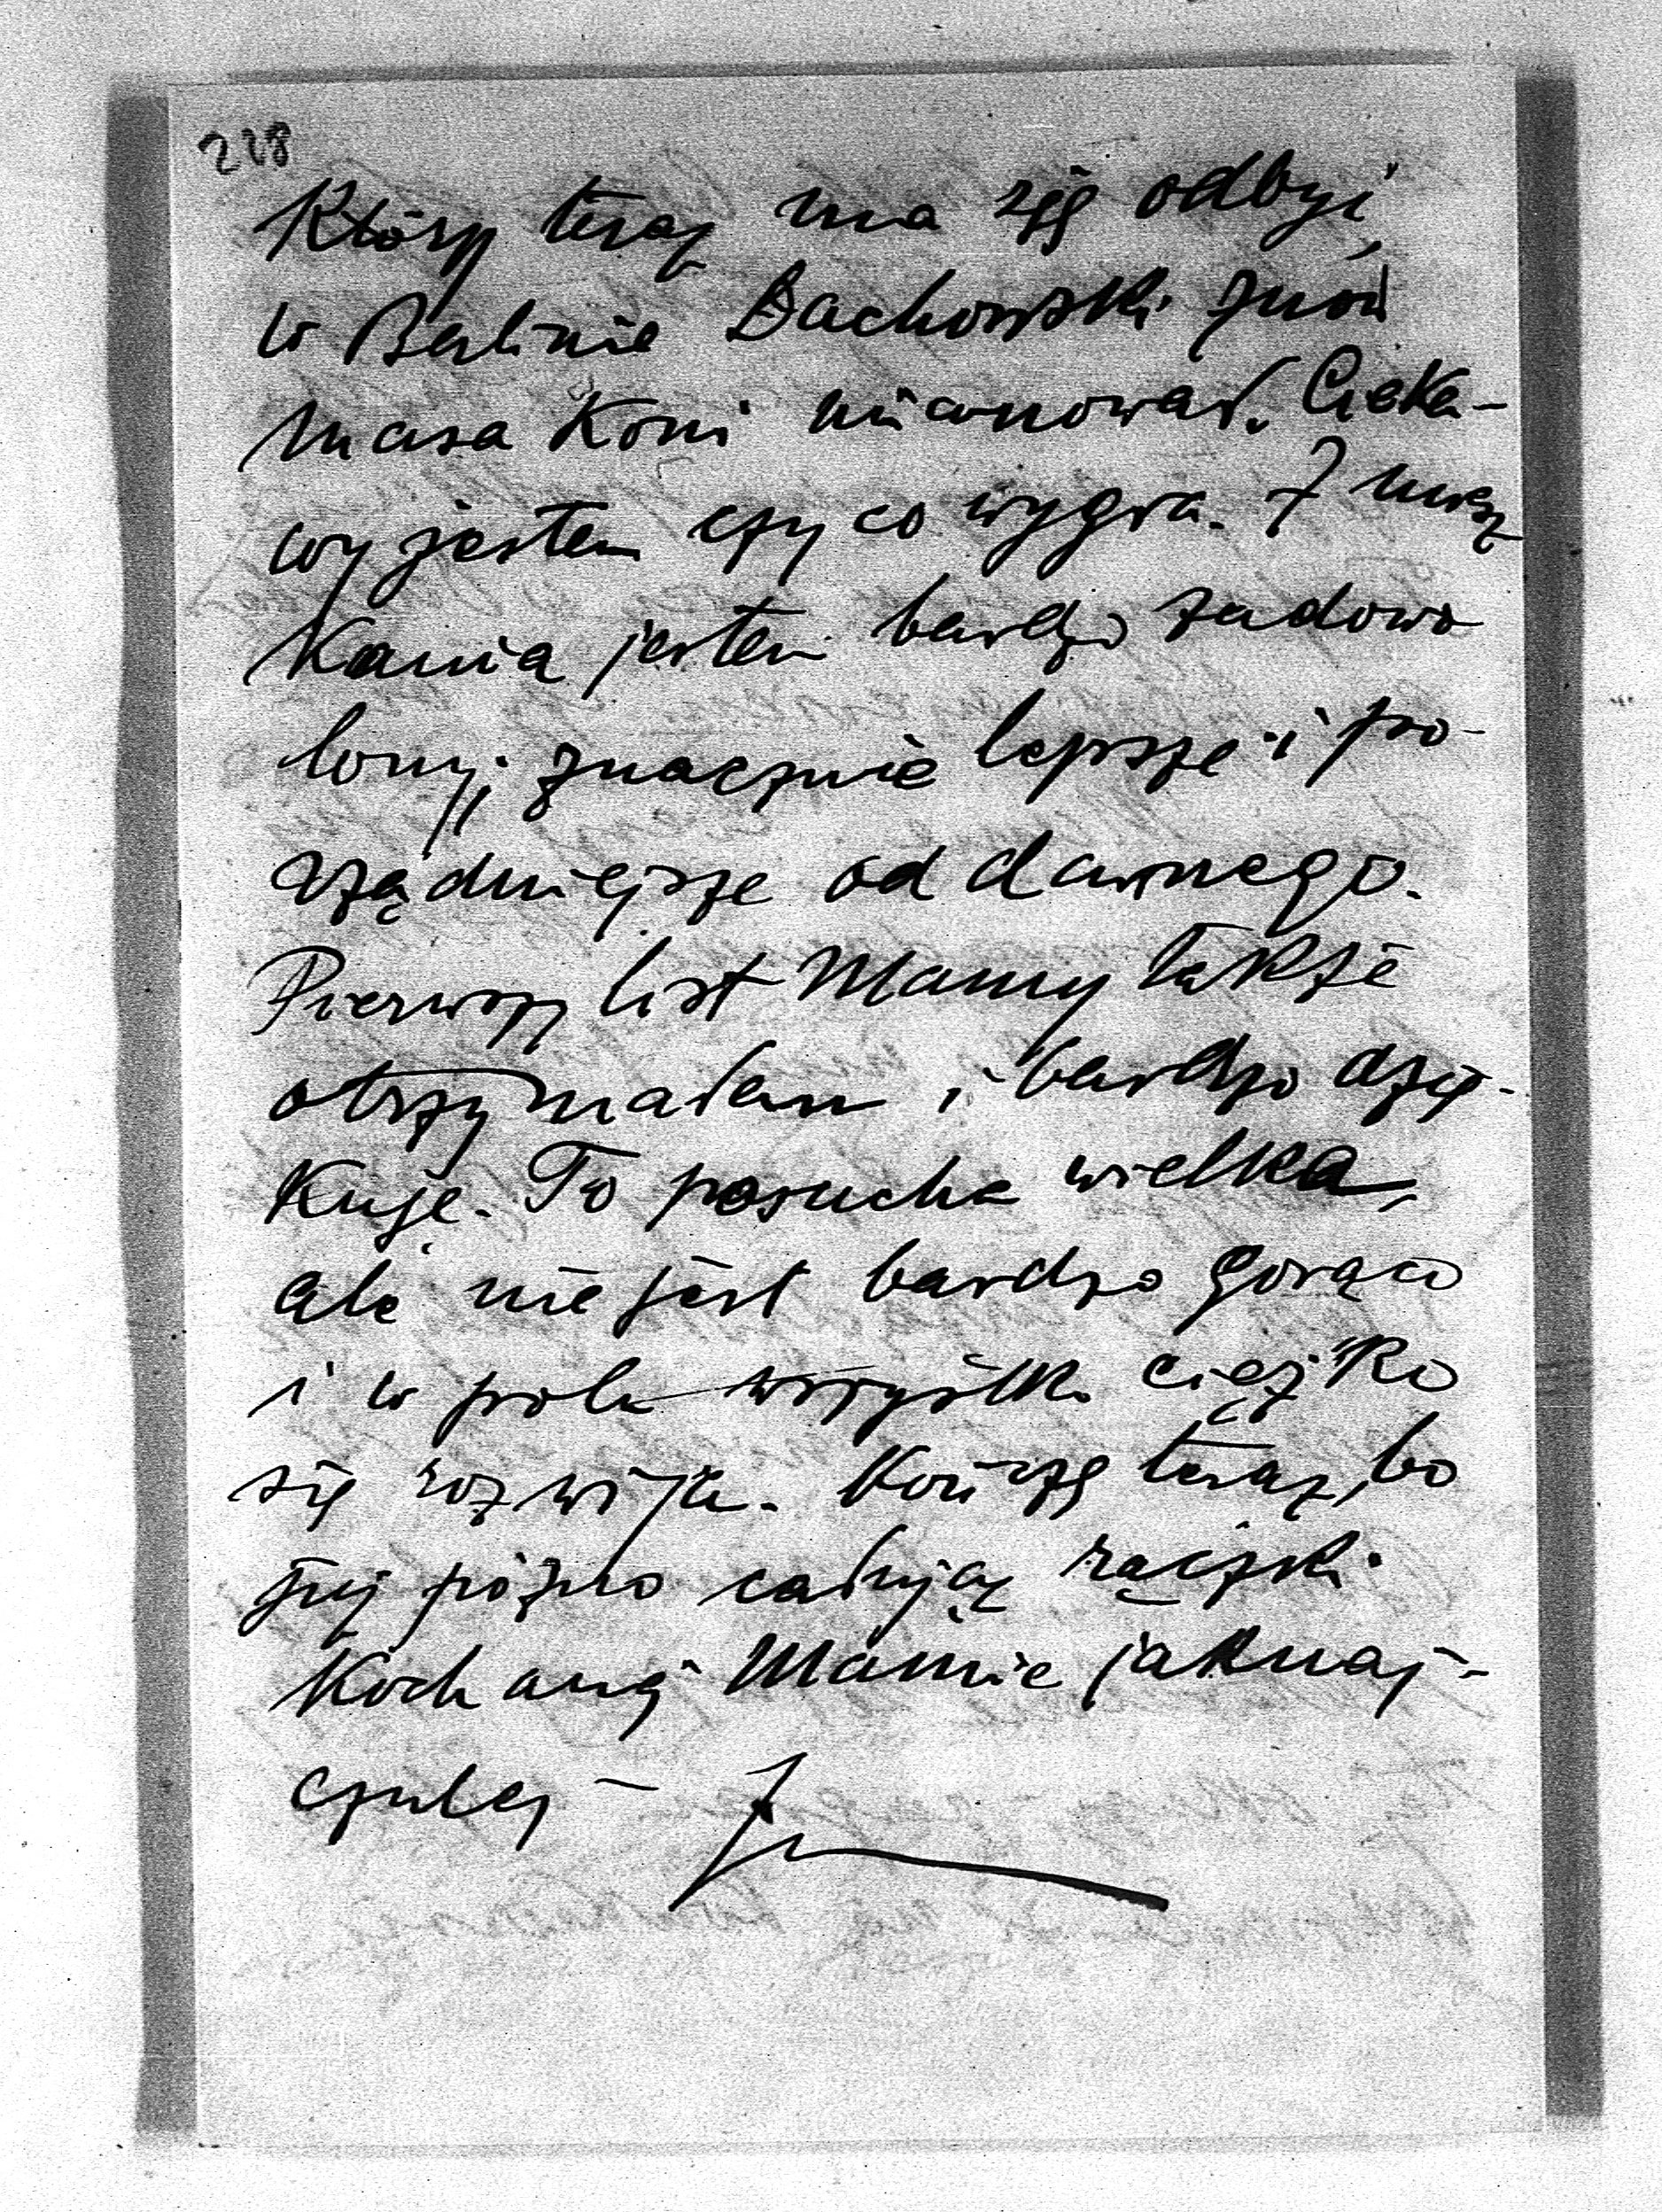 228
Który teraz ma się odbyć
w Berlinie Bachowski znów
masa koni mianował. Cieka-
wy jestem czy co wygra. Z miesz
kania jestem bardzo zadowo
lony, znacznie lepsze i po-
rządniejsze od dawnego.
Pierwszy list Mamy także
otrzymałem i bardzo dzię-
kuję. Tu posucha wielka,
ale nie jest bardzo gorąco
i w polu wszystko ciężko
się rozwija. Kończę teraz, bo
już późno całując rączki
Kochanej Mamie jaknaj-
czulej –